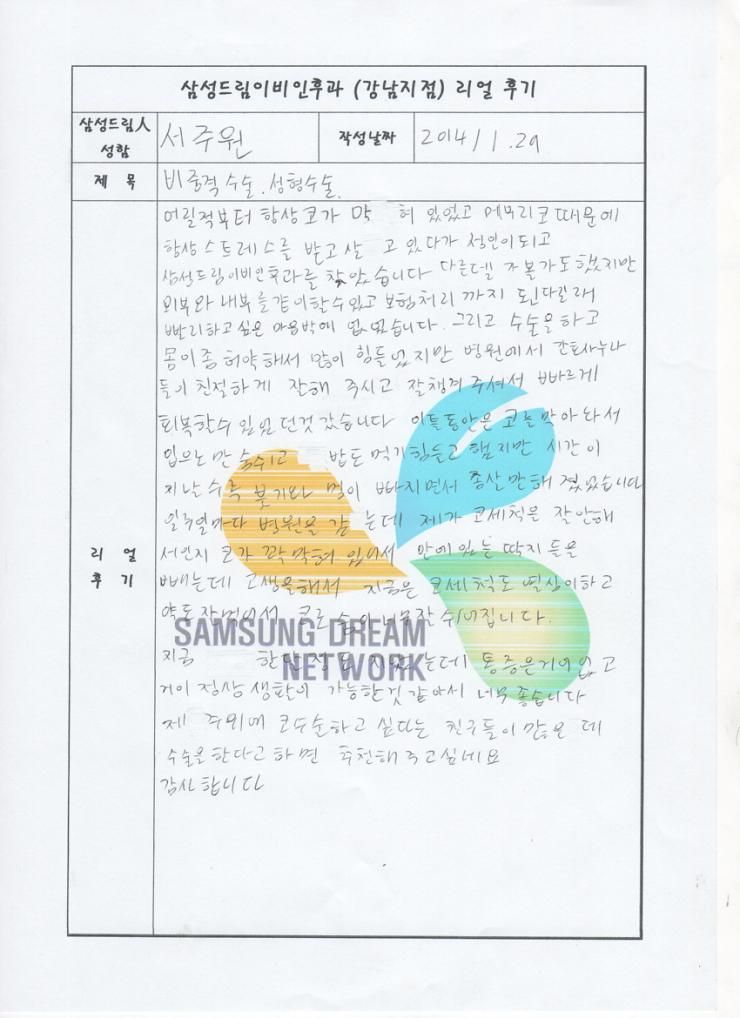 삼성드림이비인후과 (강남지점) 리얼 후기
삼성드림人 성함 서주원 작성날짜 2014/1.29
제 목 비중격수술.성형수술.
어릴적부터 항상코가 막 혀 있었고 메부리코때문에
항상스트레스를 받고살 고 있다가 성인이되고
삼성드림이비인후과를 찾았습니다 다른델 가볼까도했지만
외부와 내부를같이할수있고 보험처리 까지 된다길래
빨리하고싶은 마음밖에 없었습니다. 그리고 수술을하고
몸이좀 허약해서 많이 힘들었지만 병원에서 간호사누나
들이 친절하게 잘해 주시고 잘챙겨주셔서 빠르게
회복할수 있었던것 같습니다 이틀동안은 코를막아놔서
입으로만 숨쉬고 밥도 먹기힘들고 했지만 시간이
지날수록 붓기와 멍이 빠지면서 좋산만해 졌었습니다
일주일마다 병원을 감 는데 제가 코세척은 잘안해
서인지 코가 꽉막혀 있어서 안에있는 딱지들을
빼는데 고생을해서 지금은 코세척도 열심이하고
약도잘먹어서 코로 숨이너무잘 쉬어집니다.
지금 한달정도 지났는데 통증은거의없고
거이정상생활이 가능한것 같아서 너무좋습니다
제 주위에 코수술하고 싶다는 친구들이 많은데
수술을한다고하면 추천해주고싶네요
감사합니다
리 얼
후 기
SAMSUNG DREAM
NETWORK